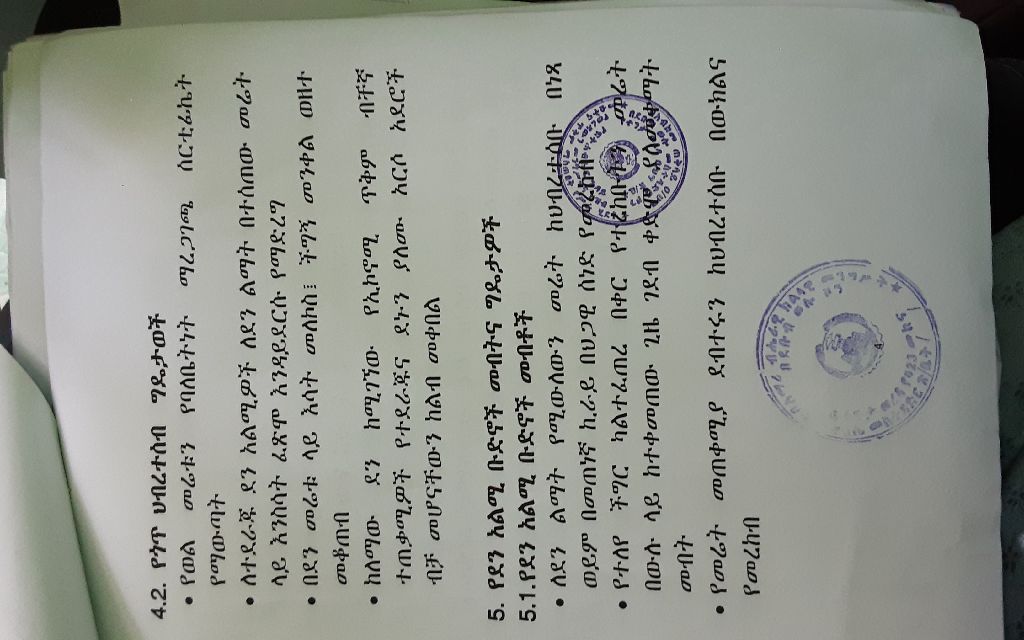 4.2. የነጥ ህብረተሰብ ግዴታወች
• የወል መሬቱን የባለቤትነት ማረጋገጫ ሰርቲፊኬት
የማውጣት
• ለተደራጁ ደን አልሚዎች ለደን ልማት በተሰጠው መሬት
ላይ እንስሳት ፈጽሞ እንዳይደርሱ የማድረግ
• በደን መሬቱ ላይ እሳት መለኮስ፤ ችግኝ መንቀል ወዘተ
መቆጠብ
• ከለማው ደን ከሚገኘው የኢኮኖሚ ጥቅም ብቸኛ
ተጠቃሚዎች የተደራጁና ደኑን ያለሙ አርሶ አደሮች
ብቻ መሆናቸውን ከልብ መቀበል
5. የደን አልሚ ቡድኖች መብትና ግዴታዎች
5.1. የደን አልሚ ቡድኖች መብዶች
• ለደን ልማት የሚውለውን መሬት ከህብረተሰቡ በነጻ
ወይም በመጠነኛ ኪራይ በህጋዊ ሰነድ የመረከብ
• የተለየ ችግር ካልተፈጠረ በቀር የተረከቡትን መሬት
በውሉ ላይ ከተቀመጠው ጊዜ ገደብ ቀድሞ ያለመቀማት
መብት
• የመሬት መጠቀሚያ ደብተሩን ከህብረተሰቡ በውክልና
የመረከብ
4